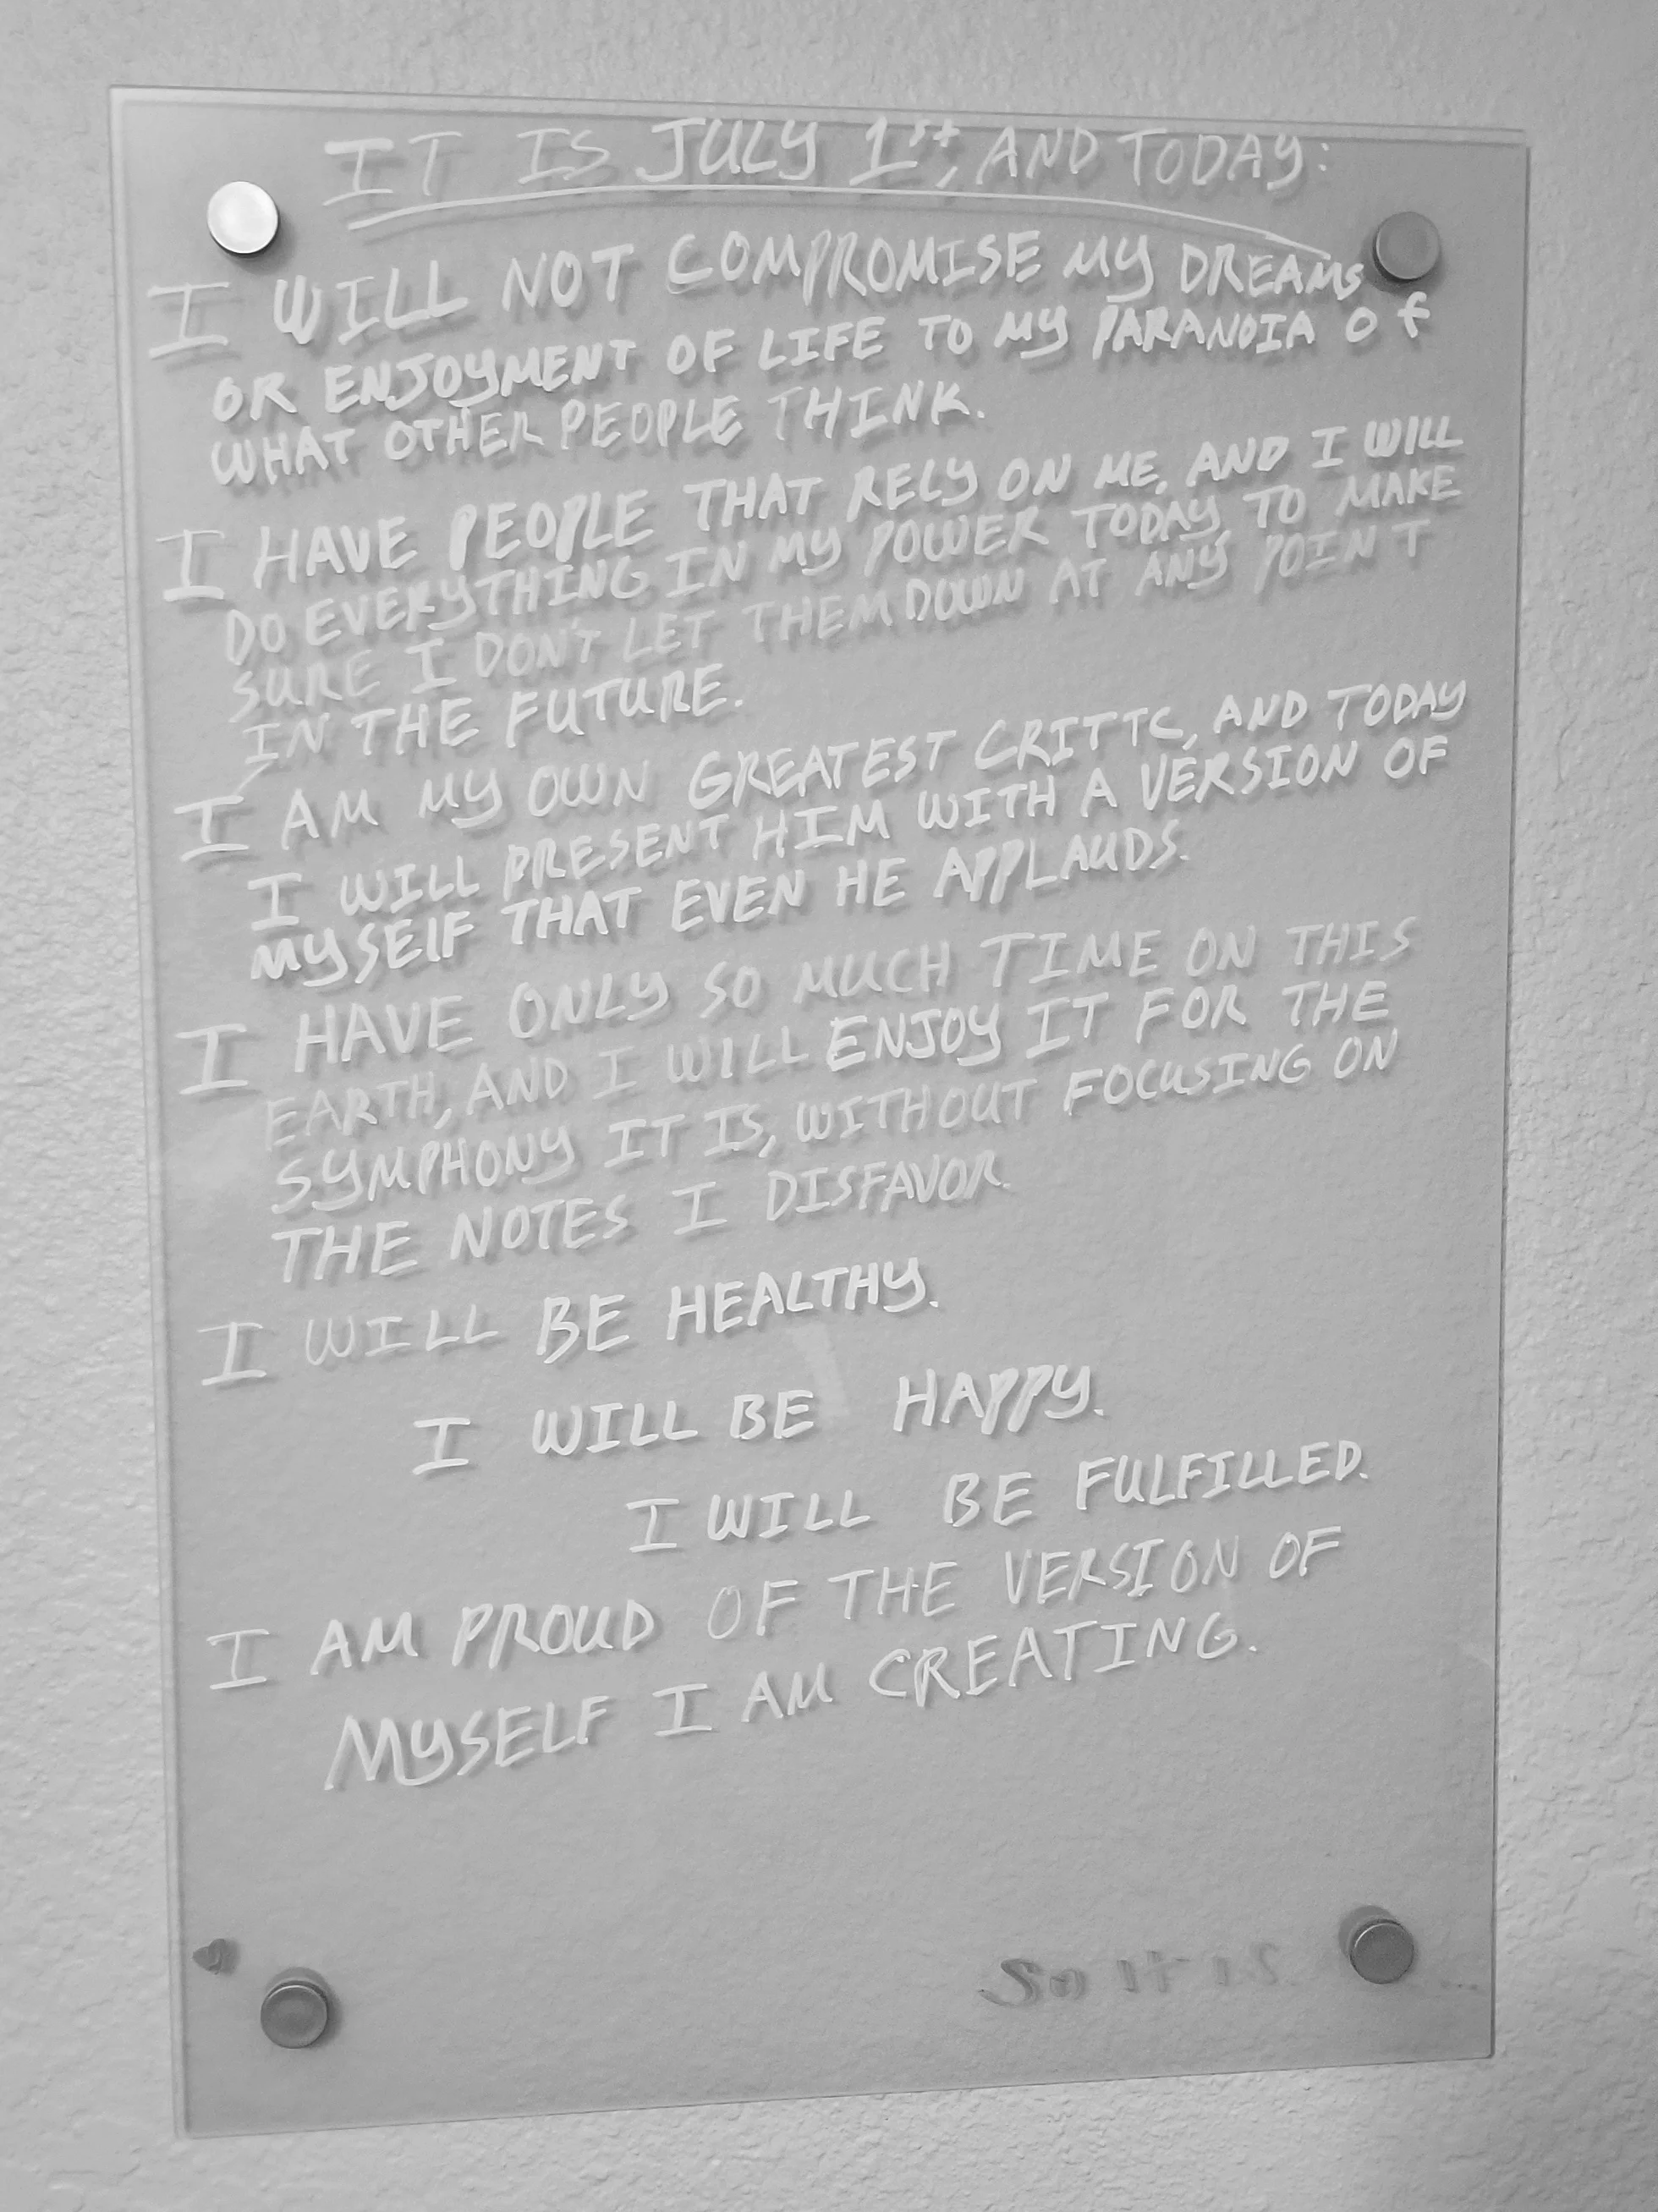 IT IS JULY 1st, AND TODAY:
I WILL NOT COMPROMISE MY DREAMS
OR ENJOYMENT OF LIFE TO MY PARANOIA Of
WHAT OTHER PEOPLE THINK.
I HAVE PEOPLE THAT RELY ON ME, AND I WILL
DO EVERYTHING IN MY POWER TODAY TO MAKE
SURE I DON'T LET THEM DOWN AT ANY POINT
IN THE FUTURE.
I AM MY OWN GREATEST CRITIC, AND TODAY
I WILL PRESENT HIM WITH A VERSION OF
MYSELF THAT EVEN HE APPLAUDS.
I HAVE ONLY SO MUCH TIME ON THIS
EARTH, AND I WILL ENJOY IT FOR THE
SYMPHONY IT IS, WITHOUT FOCUSING ON
THE NOTES I DISFAVOR.
I WILL BE HEALTHY.
I WILL BE HAPPY.
I WILL BE FULFILLED.
I AM PROUD OF THE VERSION OF
MYSELF I AM CREATING.
So it is